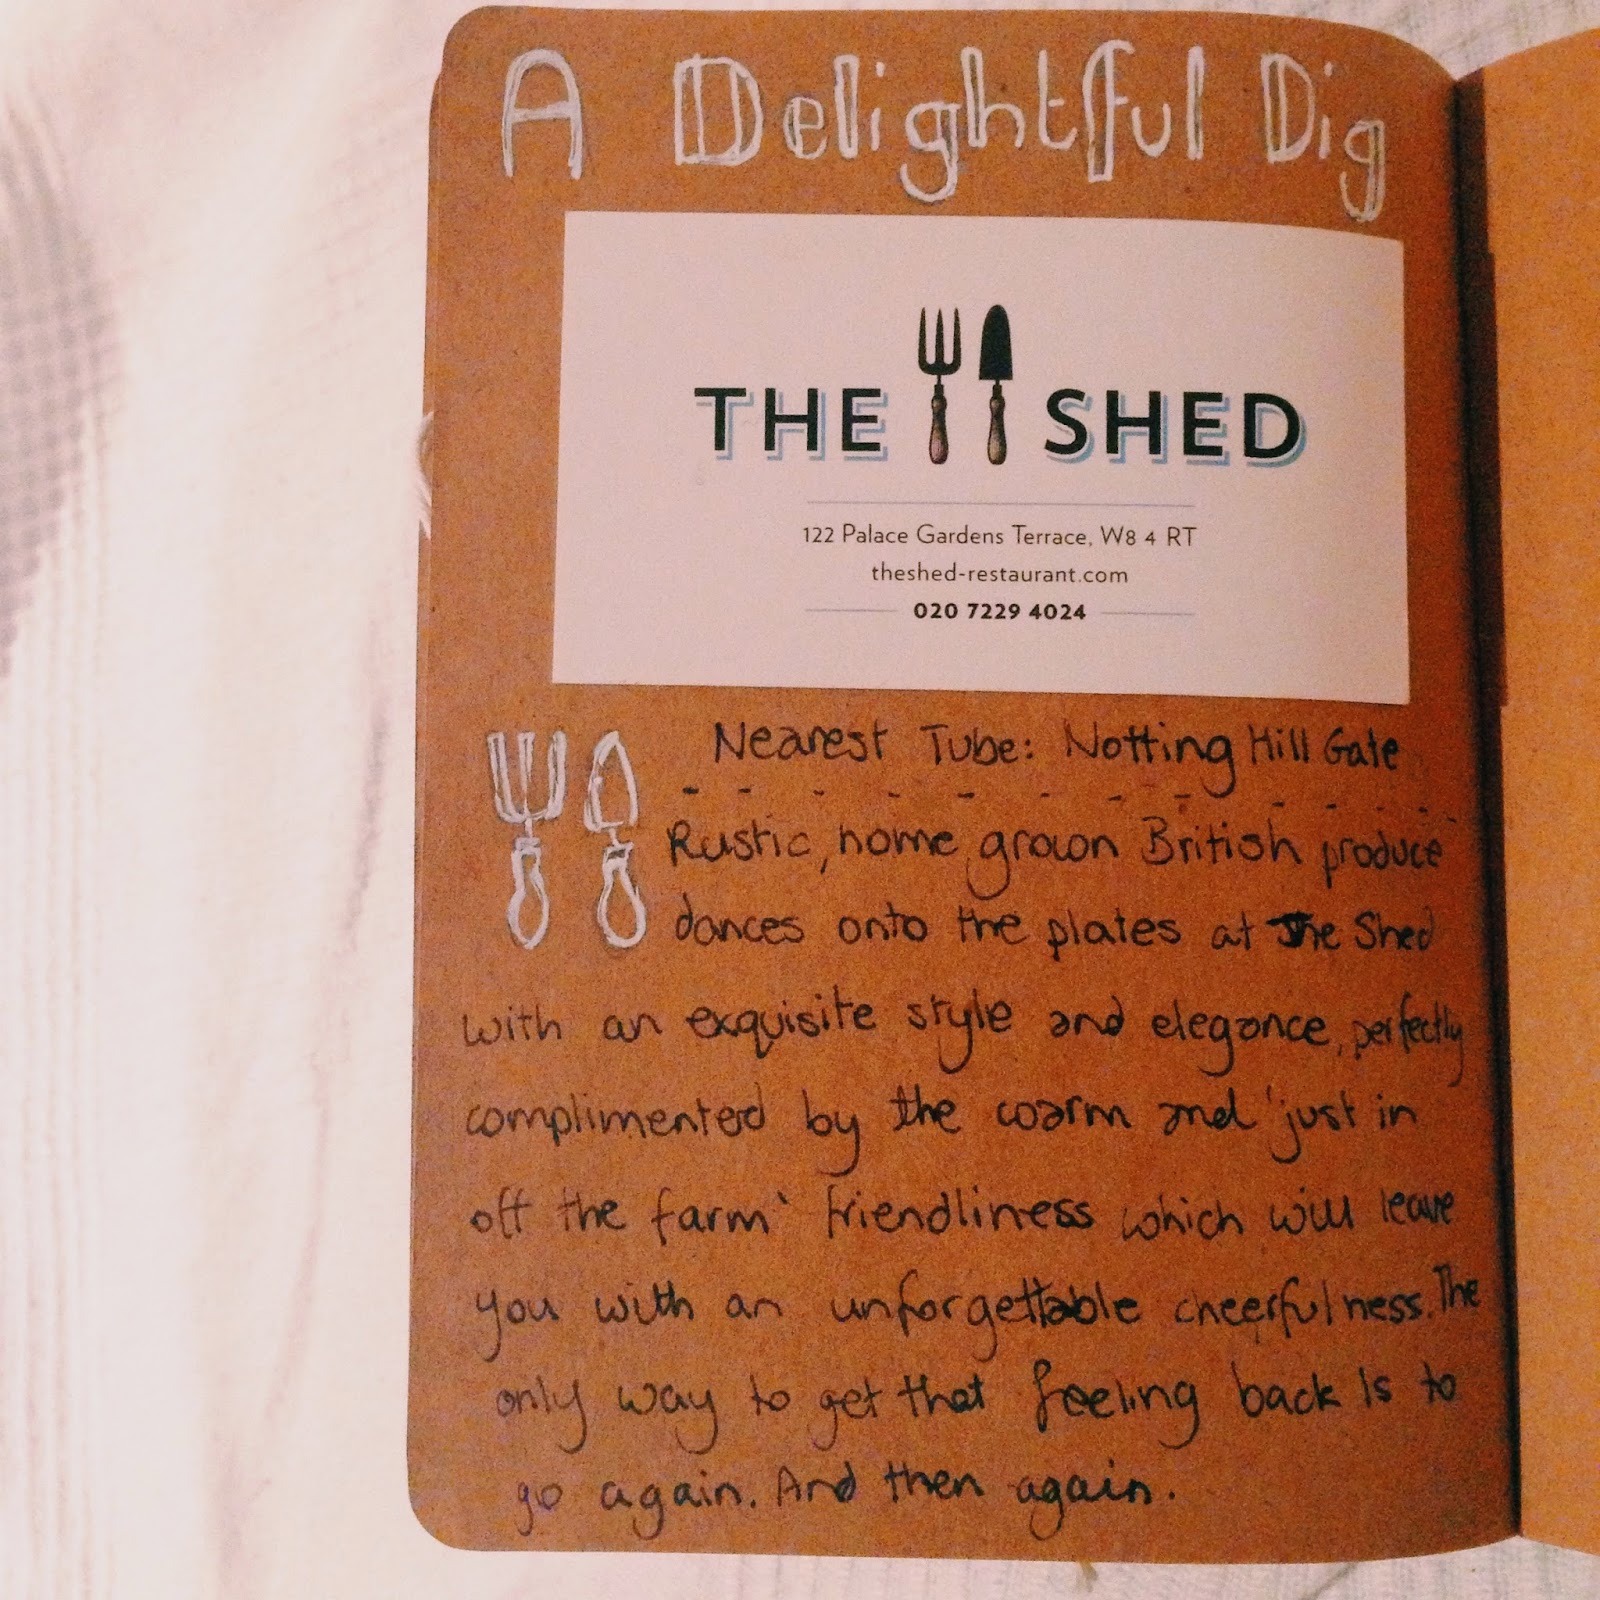 A Delightful Dig
THE SHED
122 Palace Gardens Terrace, W8 4 RT
theshed-restaurant.com
020 7229 4024
Nearest Tube: Notting Hill Gate
Rustic, home grown British produce
dances onto the plates at The Shed
with an exquisite style and elegance, perfectly
complimented by the warm and 'just in
off the farm' friendliness which will leave
you with an unforgettable cheerfulness. The
only way to get that feeling back is to
go again. And then again.